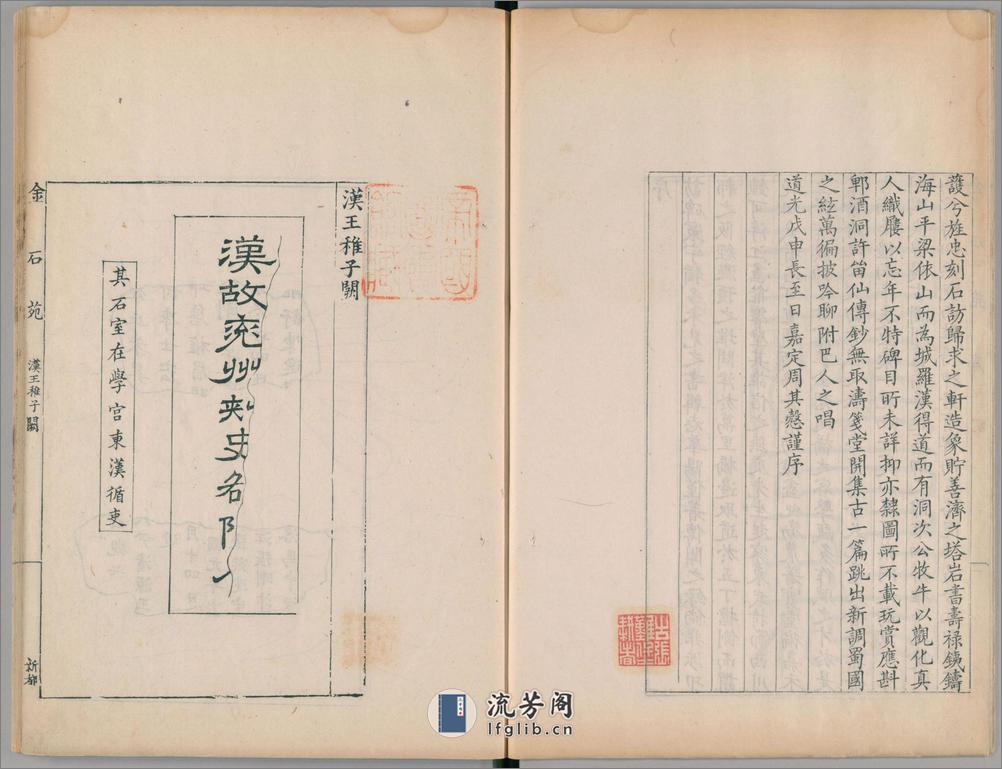 護兮旌忠刻石訪歸求之軒造象貯善濟之塔岩書壽祿銕鑄
海山平梁依山而為城羅漢得道而有洞次公牧牛以觀化真
人織屨以忘年不特碑目所未詳抑亦隸圖所不載玩賞應斟
郫酒洞許笛仙傳鈔無取濤箋堂開集古一篇跳出新調蜀國
之絃萬徧披吟聊附巴人之唱
道光戊申長至日嘉定周其慤謹序
漢王稚子闕
漢故兗州刺史名
其石室在學宮東漢循吏
金石苑
漢王稚子闕
新都
流芳阁
lfglib.cn